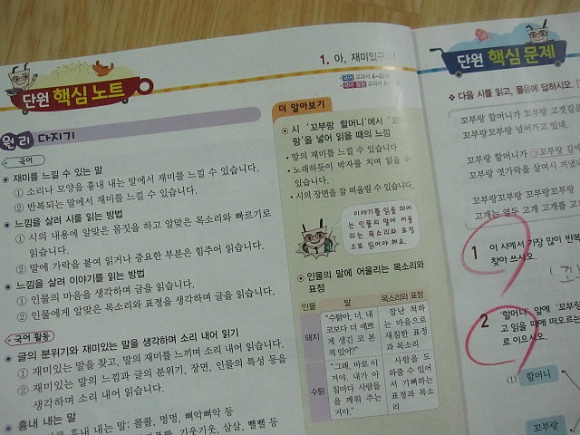 단원 핵심 노트
1. 아, 재미있구나!
원리 다지기
국어
재미를 느낄 수 있는 말
① 소리나 모양을 흉내 내는 말에서 재미를 느낄 수 있습니다.
② 반복되는 말에서 재미를 느낄 수 있습니다.
느낌을 살려 시를 읽는 방법
① 시의 내용에 알맞은 몸짓을 하고 알맞은 목소리와 빠르기로
읽습니다.
② 말에 가락을 붙여 읽거나 중요한 부분은 힘주어 읽습니다.
느낌을 살려 이야기를 읽는 방법
① 인물의 마음을 생각하며 글을 읽습니다.
② 인물에게 알맞은 목소리와 표정을 생각하며 글을 읽습니다.
국어 활동
글의 분위기와 재미있는 말을 생각하며 소리 내어 읽기
① 재미있는 말을 찾고, 말의 재미를 느끼며 소리 내어 읽습니다.
② 재미있는 말의 느낌과 글의 분위기, 장면, 인물의 특성 등을
생각하며 소리 내어 읽습니다.
흉내 내는 말
더 알아보기
시 '꼬부랑 할머니'에서 '꼬부
랑'을 넣어 읽을 때의 느낌
말의 재미를 느낄 수 있습니다
노래하듯이 박자를 치며 읽을 수
있습니다.
시의 장면을 잘 떠올릴 수 있습니다.
이야기를 읽을 때에
는 인물의 말에 어울
리는 목소리와 표정
으로 읽어야 해요.
인물의 말에 어울리는 목소리와
표정
인물 말 목소리와 표정
돼지 "수탉아, 너, 내 코보다 더 예쁘게 생긴 코 본 적 있어?" 잘난 척하는 마음으로 새침한 표정과 목소리
수탉 "그래, 바로 이거야. 내가 아침마다 사람들을 깨워 주는 거야." 사람을 도와줄 수 있어서 기뻐하는 표정과 목소리
단원 핵심 문제
다음 시를 읽고, 물음에 답하시오.
꼬부랑 할머니가 꼬부랑 고갯길을
꼬부랑꼬부랑 넘어가고 있네.
꼬부랑 할머니가
꼬부랑 엿가락을 살며시 꺼냈
꼬부랑꼬부랑 꼬부랑꼬부랑
고개는 열두 고개 고개를 고
1 이 시에서 가장 많이 반복
찾아 쓰시오.
2 '할머니' 앞에 '꼬부랑
고 읽을 때에 떠오르는
로 이으시오.
(1) 할머니
꼬부랑